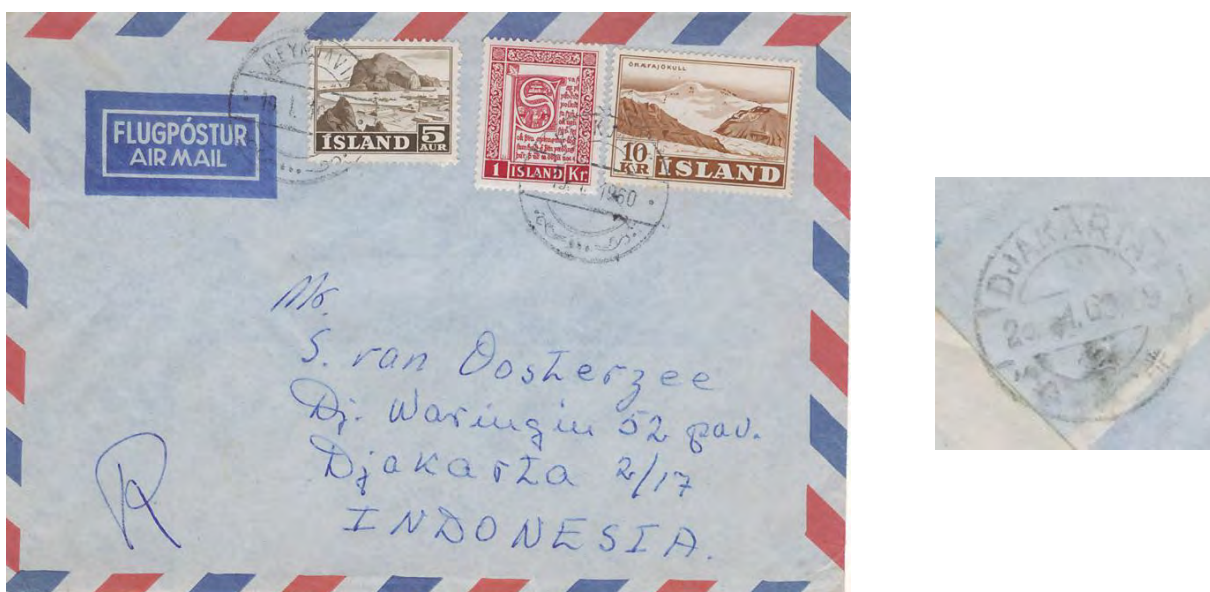 FLUGPÓSTUR
AIR MAIL
REYKJAVÍ
ÍSLAND 5
AUR
1 ÍSLAND Kr.
ÖRÆFAJÖKULL
10
KR ÍSLAND
1960
Mr.
S. van Oosterzee
Dj. Waringin 52 pav.
Djakarta 2/17
INDONESIA.
R
DJAKARTA